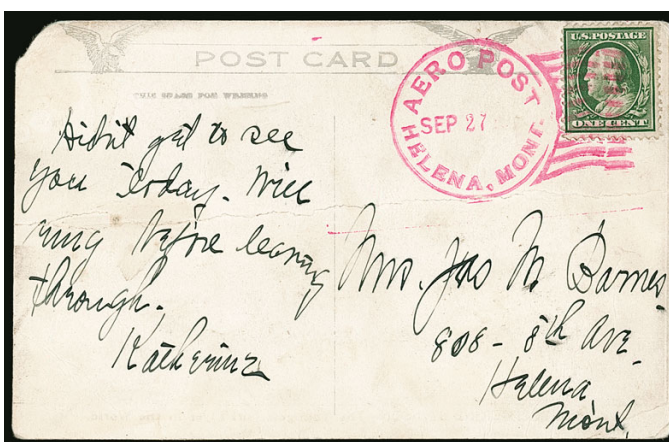 POST CARD
THIS SPACE FOR WRITING
AERO POST
SEP 27
HELENA, MONT.
U.S. POSTAGE
ONE CENT
Didn't get to see
you today. Will
ring before leaving
through.
Katherine
Mrs. Jas M. Barnes
808 - 8th Ave.
Helena
Mont.